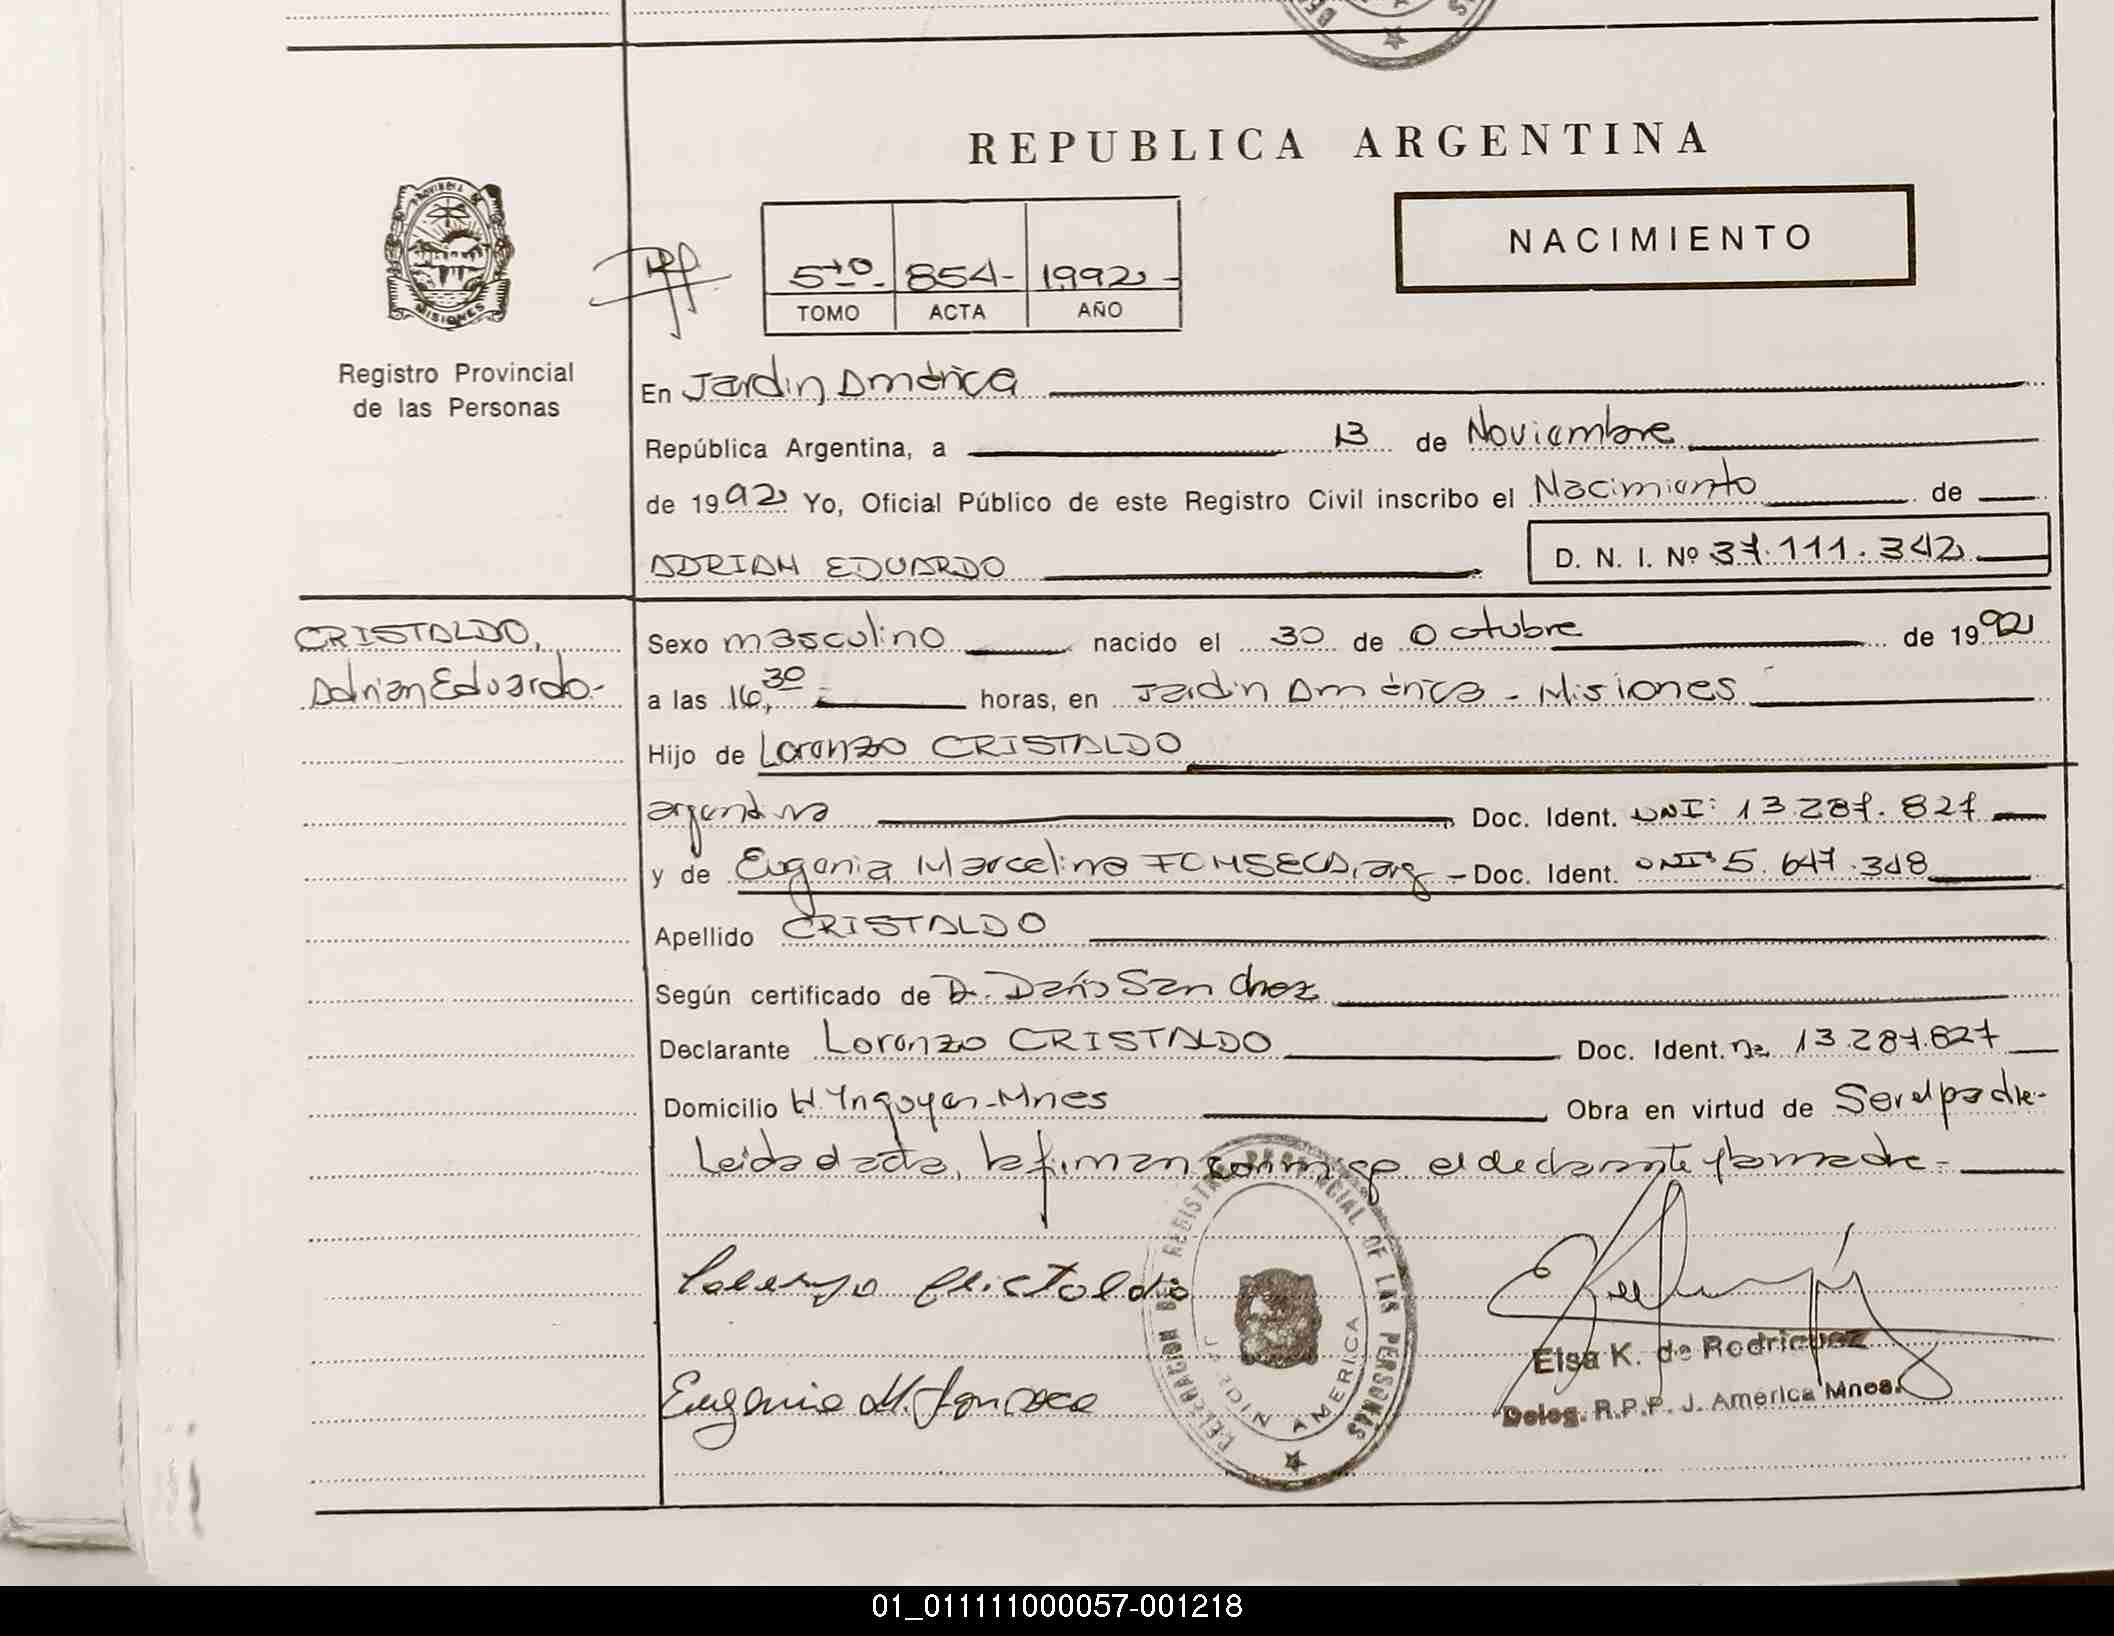 REPUBLICA ARGENTINA
NACIMIENTO
PROVINCIA DE
MISIONES
5to - 854 - 1992 -
TOMO ACTA AÑO
Registro Provincial
de las Personas
En Jardín América
República Argentina, a 13 de Noviembre
de 1992 Yo, Oficial Público de este Registro Civil inscribo el Nacimiento de
ADRIAN EDUARDO D. N. I. Nº 37.111.342
CRISTALDO,
Adrian Eduardo-
Sexo masculino nacido el 30 de Octubre de 1992
a las 16,30 horas, en Jardín América - Misiones
Hijo de Lorenzo CRISTALDO
argentina Doc. Ident. DNI: 13.287.827
y de Eugenia Marcelina FONSECA, arg - Doc. Ident. DNI: 5.647.318
Apellido CRISTALDO
Según certificado de D. Darío Sanchez
Declarante Lorenzo CRISTALDO Doc. Ident. 13.287.827
Domicilio H. Yrigoyen - Mnes Obra en virtud de Ser el padre-
Leida el acta, la firman conmigo el declarante y la madre -
Lorenzo Cristaldo
Eugenia M. Fonseca
DELEGACION DE REGISTRO PROVINCIAL DE LAS PERSONAS
JARDIN AMERICA
Elsa K. de Rodriguez
Deleg. R.P.P. J. América Mnes.
01_011111000057-001218